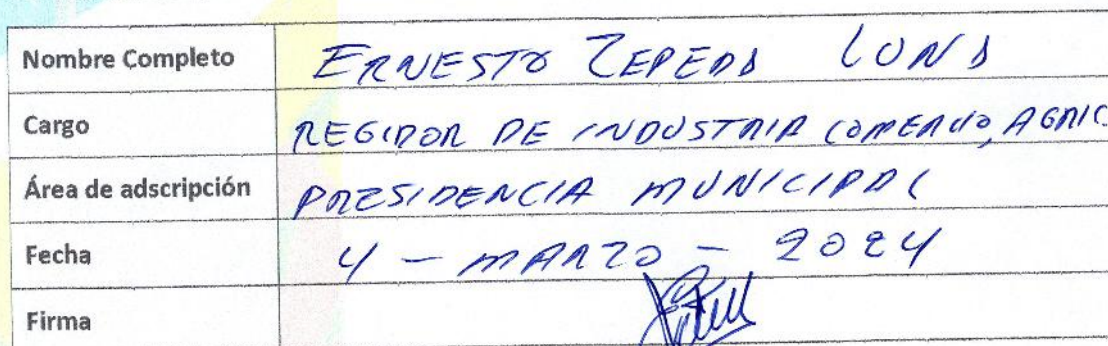 Nombre Completo ERNESTO ZEPEDA LUNA
Cargo REGIDOR DE INDUSTRIA COMERCIO, AGRIC
Área de adscripción PRESIDENCIA MUNICIPAL
Fecha 4 - MARZO - 2024
Firma